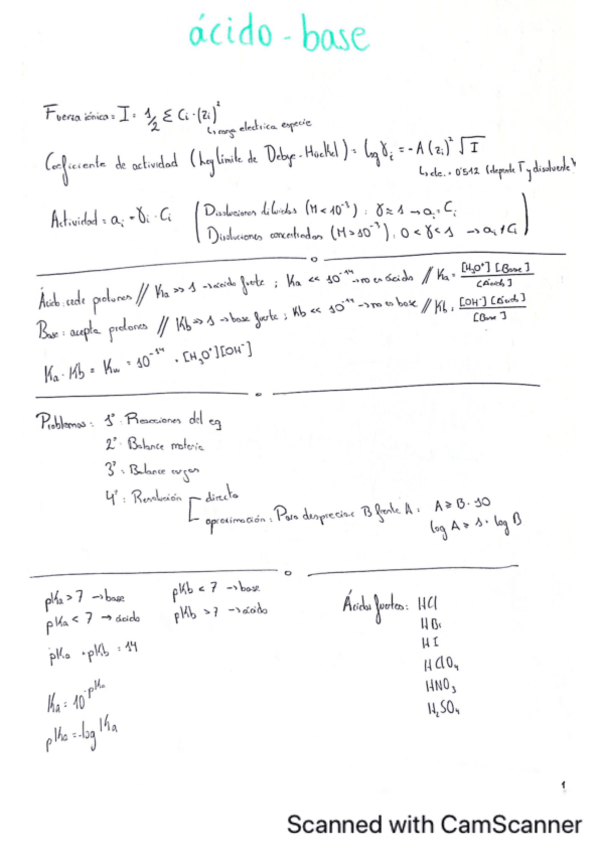 ácido - base
Fuerza iónica = I = 1/2 Σ Ci · (zi)²
↳ carga electrica especie
Coeficiente de actividad (ley límite de Debye-Hückel) = log γi = -A (zi)² √I
↳ cte. = 0'512 (depende T y disolvente)
Actividad = ai = γi · Ci
Disoluciones diluidas (M < 10⁻³) : γ ≈ 1 → ai = Ci
Disoluciones concentradas (M > 10⁻³) : 0 < γ < 1 → ai ≠ Ci
Ácido: cede protones // Ka >> 1 → ácido fuerte ; Ka << 10⁻¹⁴ → no es ácido // Ka = [H₃O⁺] [Base] / [Ácido]
Base: acepta protones // Kb >> 1 → base fuerte ; Kb << 10⁻¹⁴ → no es base // Kb = [OH⁻] [Ácido] / [Base]
Ka · Kb = Kw = 10⁻¹⁴ = [H₃O⁺][OH⁻]
Problemas: 1º: Reacciones del eq
2º: Balance materia
3º: Balance cargas
4º: Resolución directa
aproximación: Para despreciar B frente A: A ≥ B · 10
log A ≥ 1 + log B
pKa > 7 → base pKb < 7 → base
pKa < 7 → ácido pKb > 7 → ácido
pKa + pKb = 14
Ka = 10^-pKa
pKa = -log Ka
Ácidos fuertes: HCl
HBr
HI
HClO₄
HNO₃
H₂SO₄
1
Scanned with CamScanner